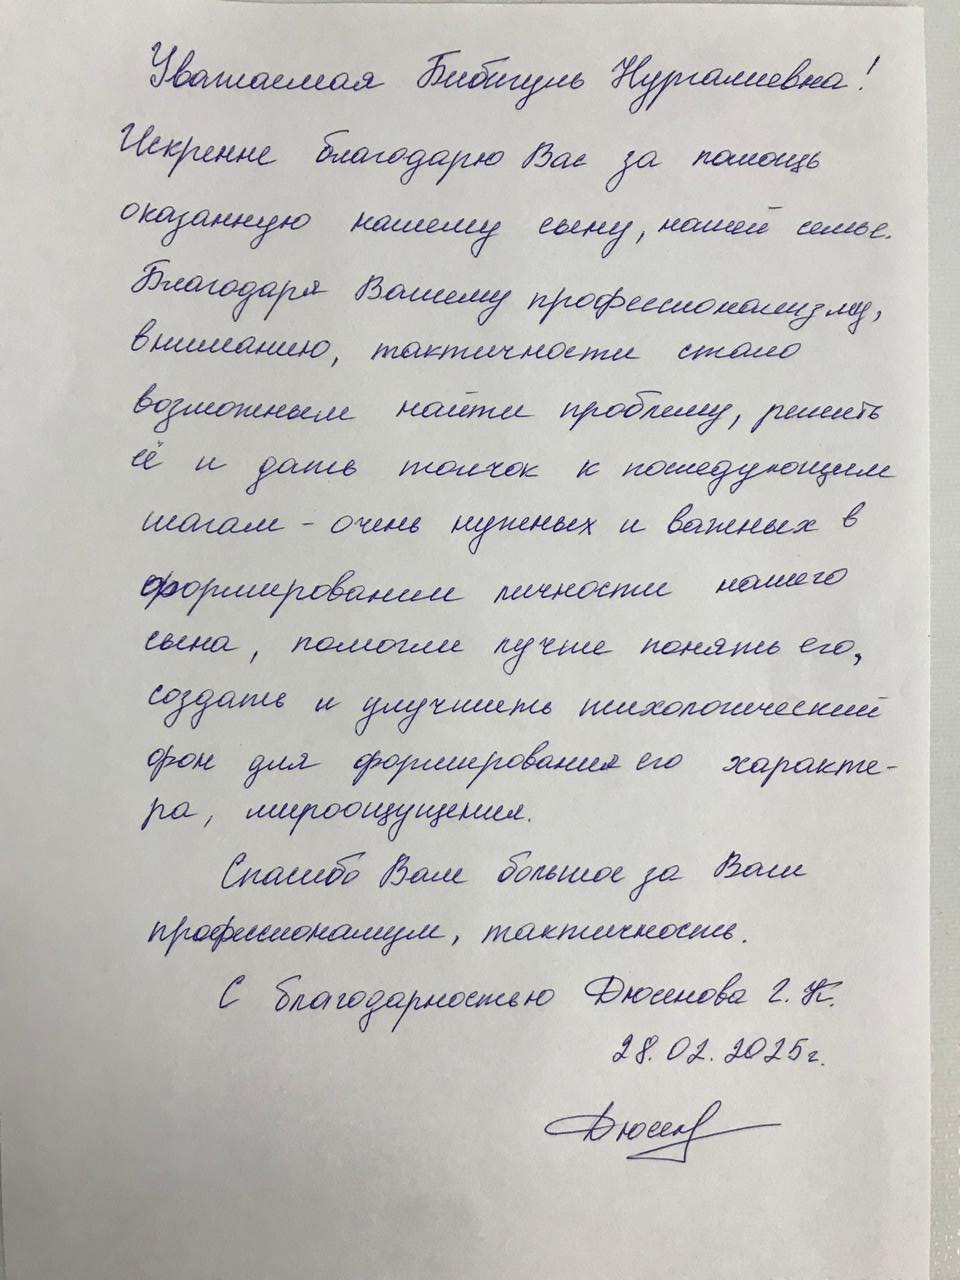 Уважаемая Бибигуль Нургалиевна!
Искренне благодарю Вас за помощь
оказанную нашему сыну, нашей семье.
Благодаря Вашему профессионализму,
вниманию, тактичности стало
возможным найти проблему, решить
её и дать толчок к последующим
шагам – очень нужных и важных в
формировании личности нашего
сына, помогли лучше понять его,
создать и улучшить психологический
фон для формирования его характе-
ра, мироощущения.
Спасибо Вам большое за Ваш
профессионализм, тактичность.
С благодарностью Дюсенова Г. К.
28.02.2025г.
Дюсен